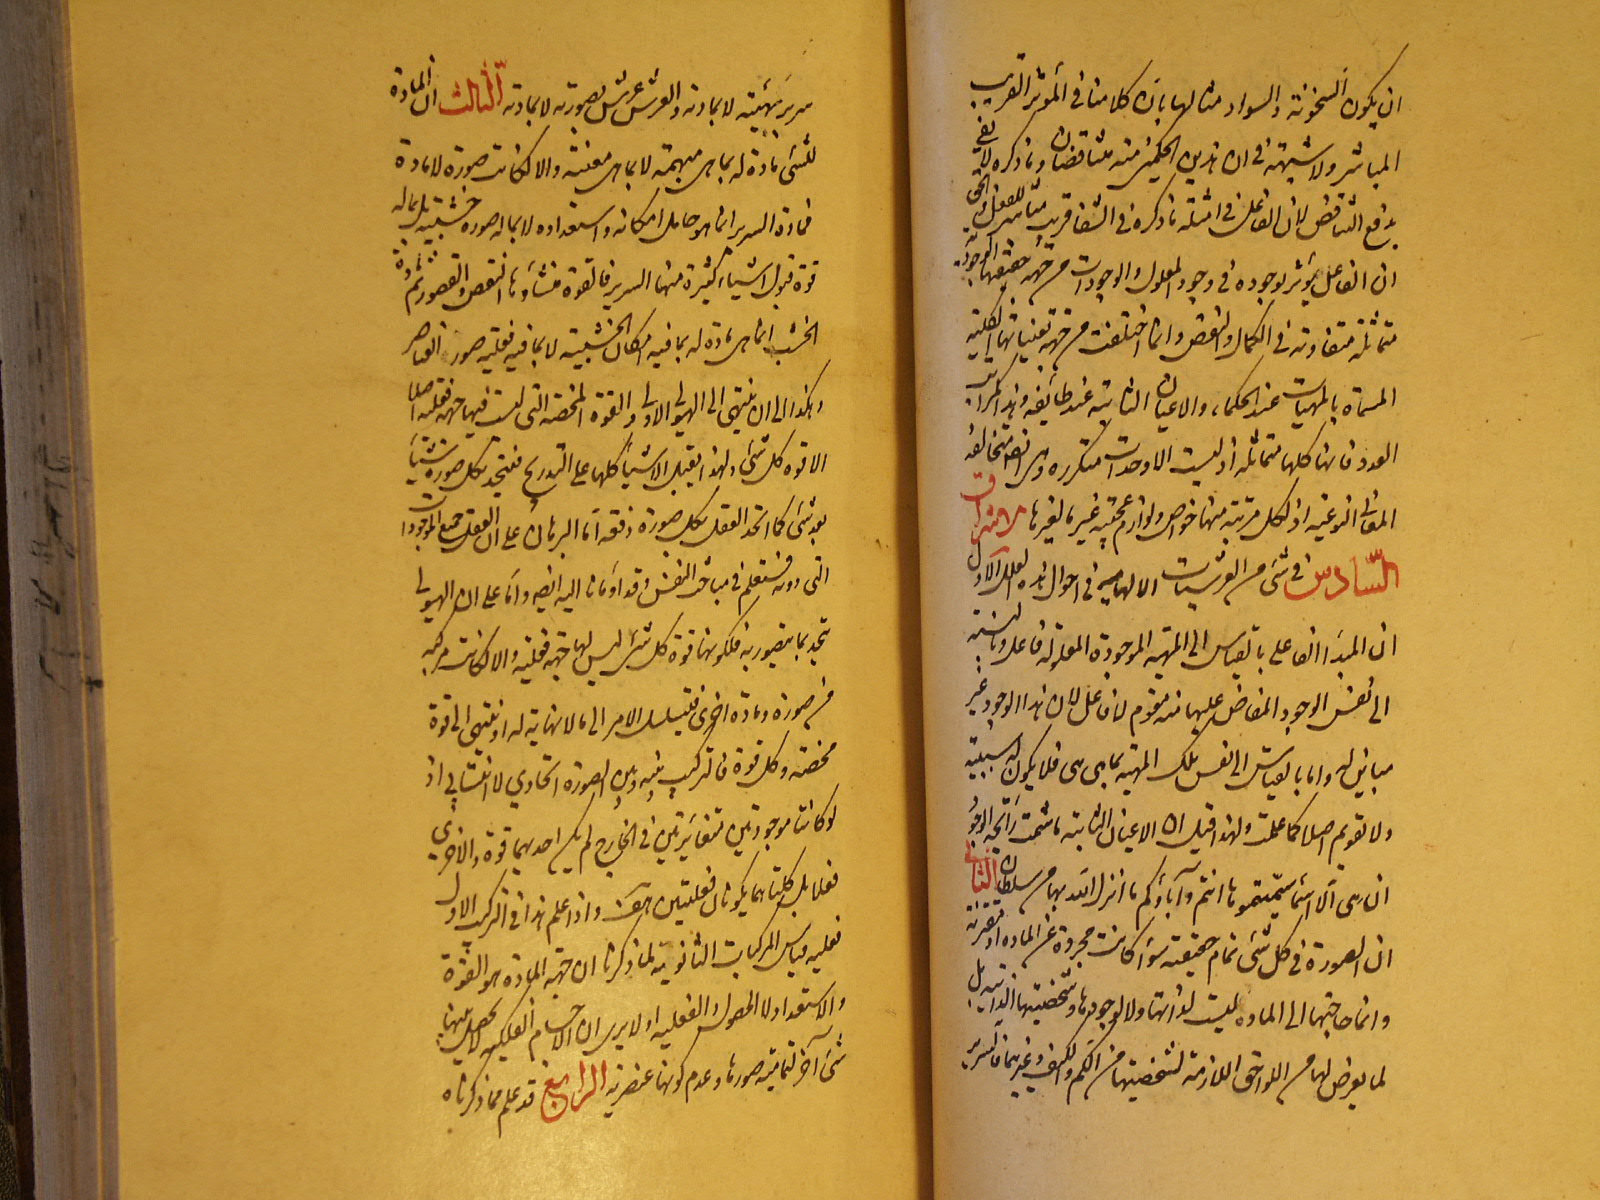 ان يكون السخونة والسواد مثالها بان كلامنا في المؤثر القريب
المباشر ولا شبهة في ان هذين الحكمين منه متناقضان وما ذكره لا يفي
بدفع التناقض لان الفاعل في امثلة ما ذكره في الشفا قريب مباشر للفعل والحق
ان الفاعل يؤثر بوجوده في وجود المعلول والوجودات من جهة حقيقتها الوجودية
متماثلة متفاوتة في الكمال والنقص وانما اختلفت من جهة تعيناتها الكلية
المسماة بالمهيات عند الحكماء والاعيان الثابتة عند طائفة وهذا كمراتب
العدد فانها كلها متماثلة اذ ليست الا وحدات متكررة وهي ايضا متخالفة
المعاني النوعية اذ لكل مرتبة منها خواص ولوازم عجيبة غير ما لغيرها الاشراق
السادس في شئ من العرشيات الالهامية في احوال هذه العلل الاول
ان المبدأ الفاعلي بالقياس الى المهية الموجودة المعلولة فاعل وبالنسبة
الى نفس الوجود المفاض عليها منه مقوم لا فاعل لان هذا الوجود غير
مباين له واما بالقياس الى نفس تلك المهية بما هي هي فلا يكون له سببية
ولا تقويم اصلا كما علمت ولهذا قيل ان الاعيان الثابتة ما شمت رائحة الوجود
ان هي الا اسماء سميتموها انتم وآباؤكم ما انزل الله بها من سلطان الثاني
ان الصورة في كل شئ تمام حقيقته سواء كانت مجردة عن المادة او مقترنة
وانما حاجتها الى المادة ليست لذاتها ولا لوجودها وشخصيتها الذاتية بل
لما يعرض لها من اللواحق اللازمة لشخصيتها من الكم والكيف وغيرهما فالسرير
سرير بهيئته لا بمادته والعرش عرش بصورته لا بمادته الثالث ان المادة
للشئ مادة له بما هي مبهمة لا بما هي معينة والا لكانت صورة لا مادة
فمادة السرير انما هو حامل امكانه واستعداده لا بما له صورة خشبية بل بما له
قوة قبول اشياء كثيرة منها السرير فالقوة منشأوها النقص والقصور ثم مادة
الخشب انما هي مادة له بما فيه امكان الخشبية لا بما فيه فعلية صور العناصر
وهكذا الى ان ينتهي الى الهيولى الاولى والقوة المحضة التي ليست فيها جهة فعلية اصلا
الا قوة كل شئ ولهذا يقبل الاشياء كلها على التدريج فيتحد بكل صورة شيئا
بعد شئ كما اتحد العقل بكل صورة دفعة اما البرهان على ان العقل جميع الموجودات
التي دونه فستعلم في مباحث النفس وقد اومانا اليه ايضا واما على ان الهيولى
يتحد بما يتصور به فلكونها قوة كل شئ ليس لها جهة فعلية والا لكانت مركبة
من صورة ومادة اخرى فيتسلسل الامر الى ما لا نهاية له او ينتهي الى قوة
محضة وكل قوة فالتركيب بينه وبين الصورة اتحادي لا انتسابي اذ
لو كانتا موجودتين متغايرتين في الخارج لم يكن احديهما قوة والاخرى
فعلا بل كلتاهما يكونان فعليتين هف واذا علم هذا في التركيب الاول
فعليه قياس المركبات الثانوية لما ذكرنا ان جهة المادة هو القوة
والاستعداد لا الحصول والفعلية اولا يرى ان الاجسام الفلكية لا يحصل منها
شئ آخر لتمامية صورها وعدم كونها عنصرية الرابع قد علم مما ذكرناه